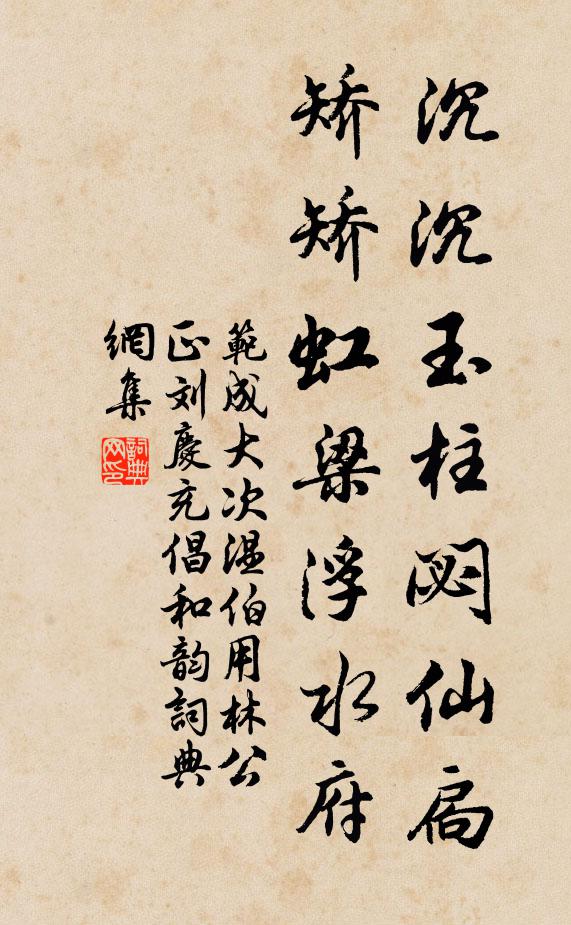 沉沉玉柱閟仙扃
矫矫虹梁浮水府
範成大次温伯用林公
正刘慶充倡和韵詞典
網集
詞典网印